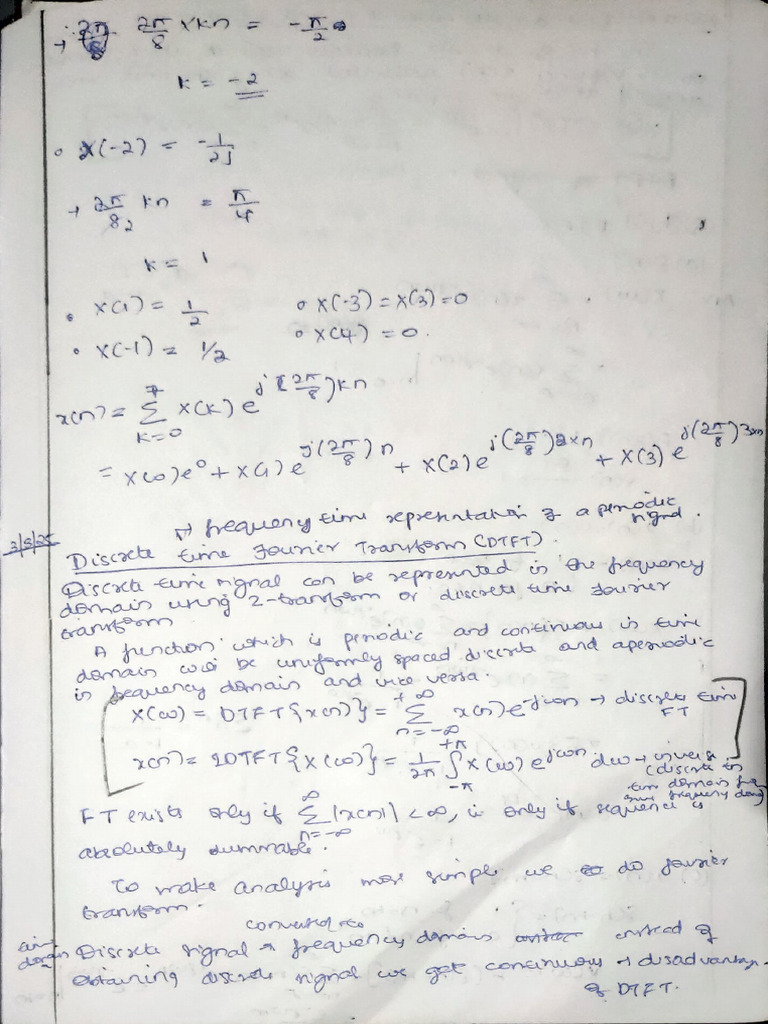 → 2π/8 × kn = -π/2
k = -2
• X(-2) = -1/2j
→ 2π/8 kn = π/4
k = 1
• X(1) = 1/2 • X(-3) = X(3) = 0
• X(-1) = 1/2 • X(4) = 0.
x(n) = Σ_{k=0}^{7} X(k) e^{j(2π/8)kn}
= X(0)e^0 + X(1) e^{j(2π/8)n} + X(2) e^{j(2π/8)2×n} + X(3) e^{j(2π/8)3×n}
→ frequency time representation of a periodic signal.
3/3/25
Discrete time Fourier Transform (DTFT).
Discrete time signal can be represented in the frequency
domain using Z-transform or discrete time fourier
transform
A function which is periodic and continuous in time
domain will be uniformly spaced discrete and aperiodic
in frequency domain and vice versa.
X(ω) = DTFT{x(n)} = Σ_{n=-∞}^{+∞} x(n) e^{-jωn} → discrete time FT
x(n) = IDTFT{X(ω)} = 1/2π ∫_{-π}^{+π} X(ω) e^{jωn} dω → inverse
(discrete in
time domain
frequency
FT exists only if Σ_{n=-∞}^{∞} |x(n)| < ∞, ie only if sequence is
absolutely summable.
To make analysis more simple we do fourier
transform.
converted to
time domain
Discrete signal → frequency domain instead of
obtaining discrete signal we get continuous → disadvantage
of DTFT.